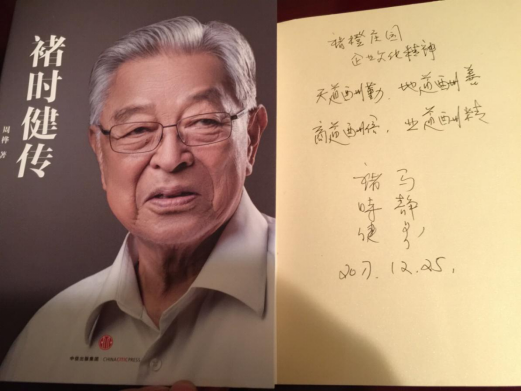 褚时健传
周桦 著
中信出版集团·CHINACITICPRESS
褚橙庄园
企业文化精神
天道酬勤、地道酬善
商道酬信、业道酬精
褚时健
马静芬
2017.12.25.